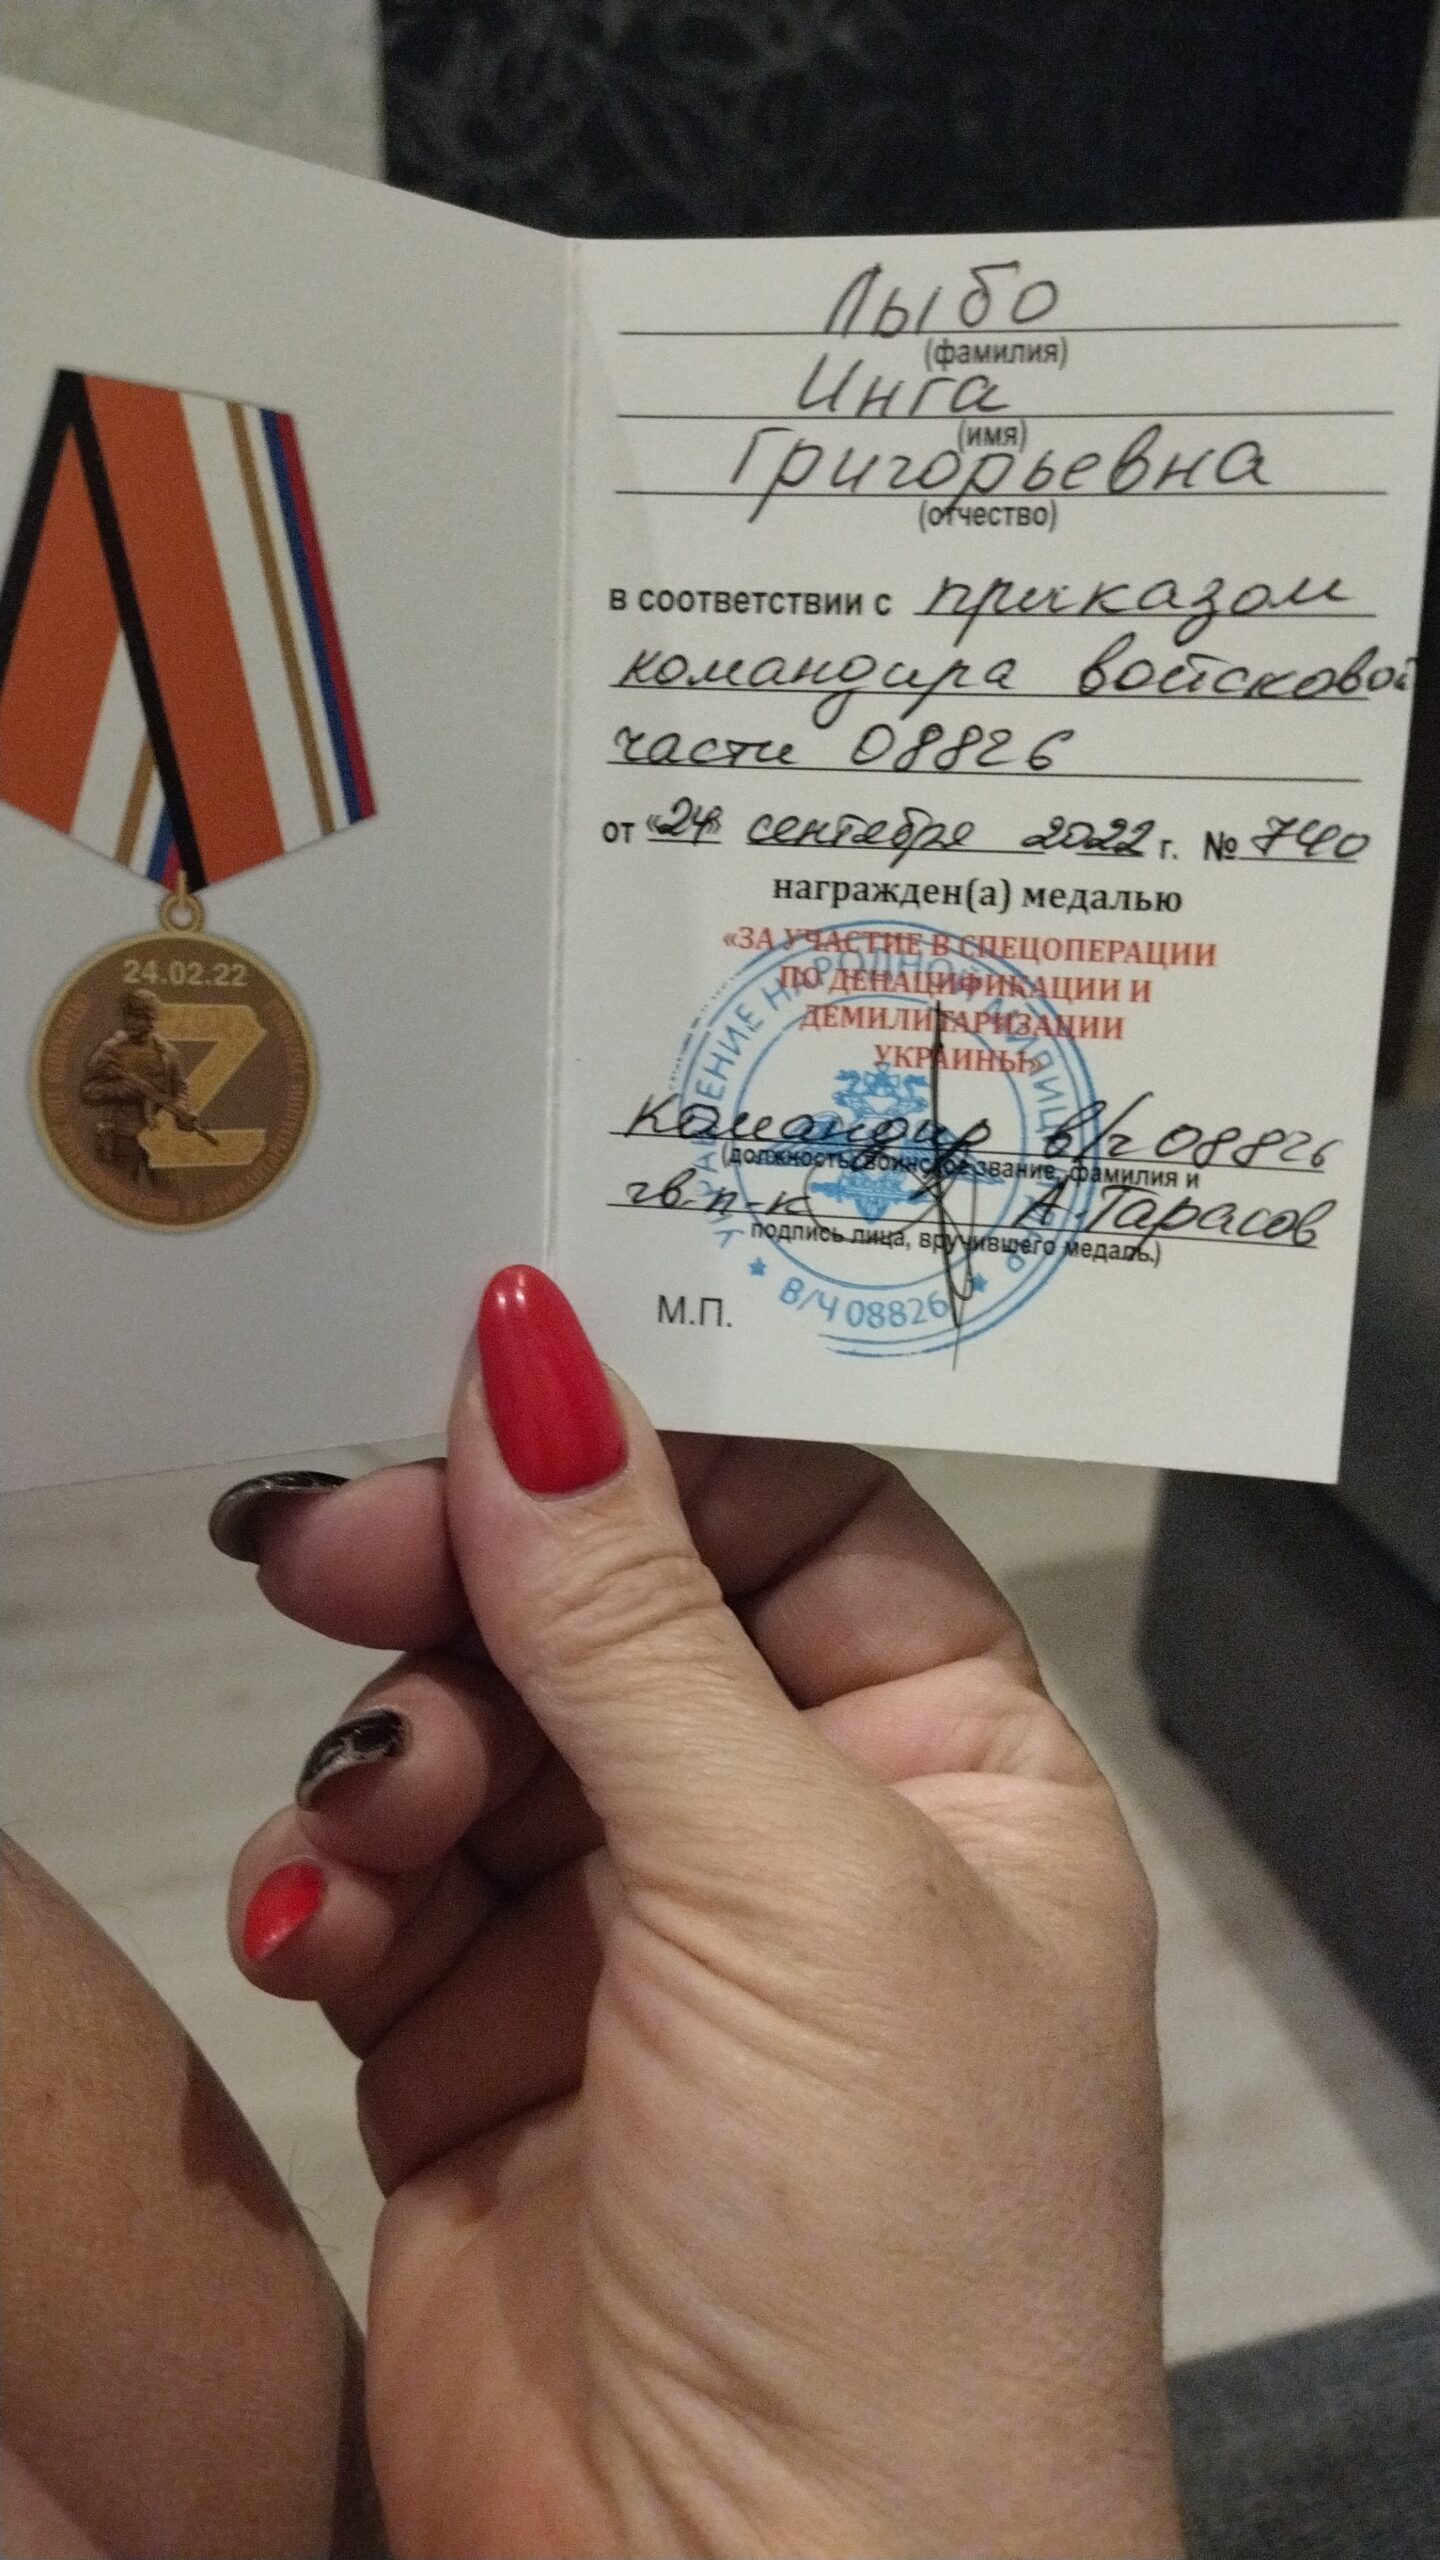 24.02.22
Лыбо
(фамилия)
Инга
(имя)
Григорьевна
(отчество)
в соответствии с приказом
командира войсковой
части 08826
от «24» сентября 2022 г. № 740
награжден(а) медалью
«ЗА УЧАСТИЕ В СПЕЦОПЕРАЦИИ
ПО ДЕНАЦИФИКАЦИИ И
ДЕМИЛИТАРИЗАЦИИ
УКРАИНЫ»
Командир в/ч 08826
(должность, воинское звание, фамилия и
гв. п-к А. Тарасов
подпись лица, вручившего медаль.)
М.П.
УПРАВЛЕНИЕ НАРОДНОЙ МИЛИЦИИ
В/Ч 08826